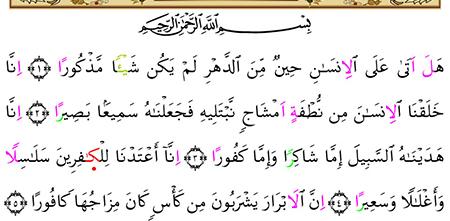 بِسْمِ اللَّهِ الرَّحْمَٰنِ الرَّحِيمِ
هَلَ اَتىٰ عَلَى الِانسَٰنِ حِينٌ مِّنَ الدَّهْرِ لَمْ يَكُن شَيْـًٔا مَّذْكُورًا ﴿١﴾ اِنَّا
خَلَقْنَا الِانسَٰنَ مِن نُّطْفَةٍ اَمْشَاجٍ نَّبْتَلِيهِ فَجَعَلْنَٰهُ سَمِيعَۢا بَصِيرًا ﴿٢﴾ اِنَّا
هَدَيْنَٰهُ السَّبِيلَ إِمَّا شَاكِرًا وَإِمَّا كَفُورًا ﴿٣﴾ اِنَّآ أَعْتَدْنَا لِلْكٰفِرِينَ سَلَٰسِلًا
وَأَغْلَٰلًا وَسَعِيرًا ﴿٤﴾ اِنَّ الَابْرَارَ يَشْرَبُونَ مِن كَأْسٍ كَانَ مِزَاجُهَا كَافُورًا ﴿٥﴾